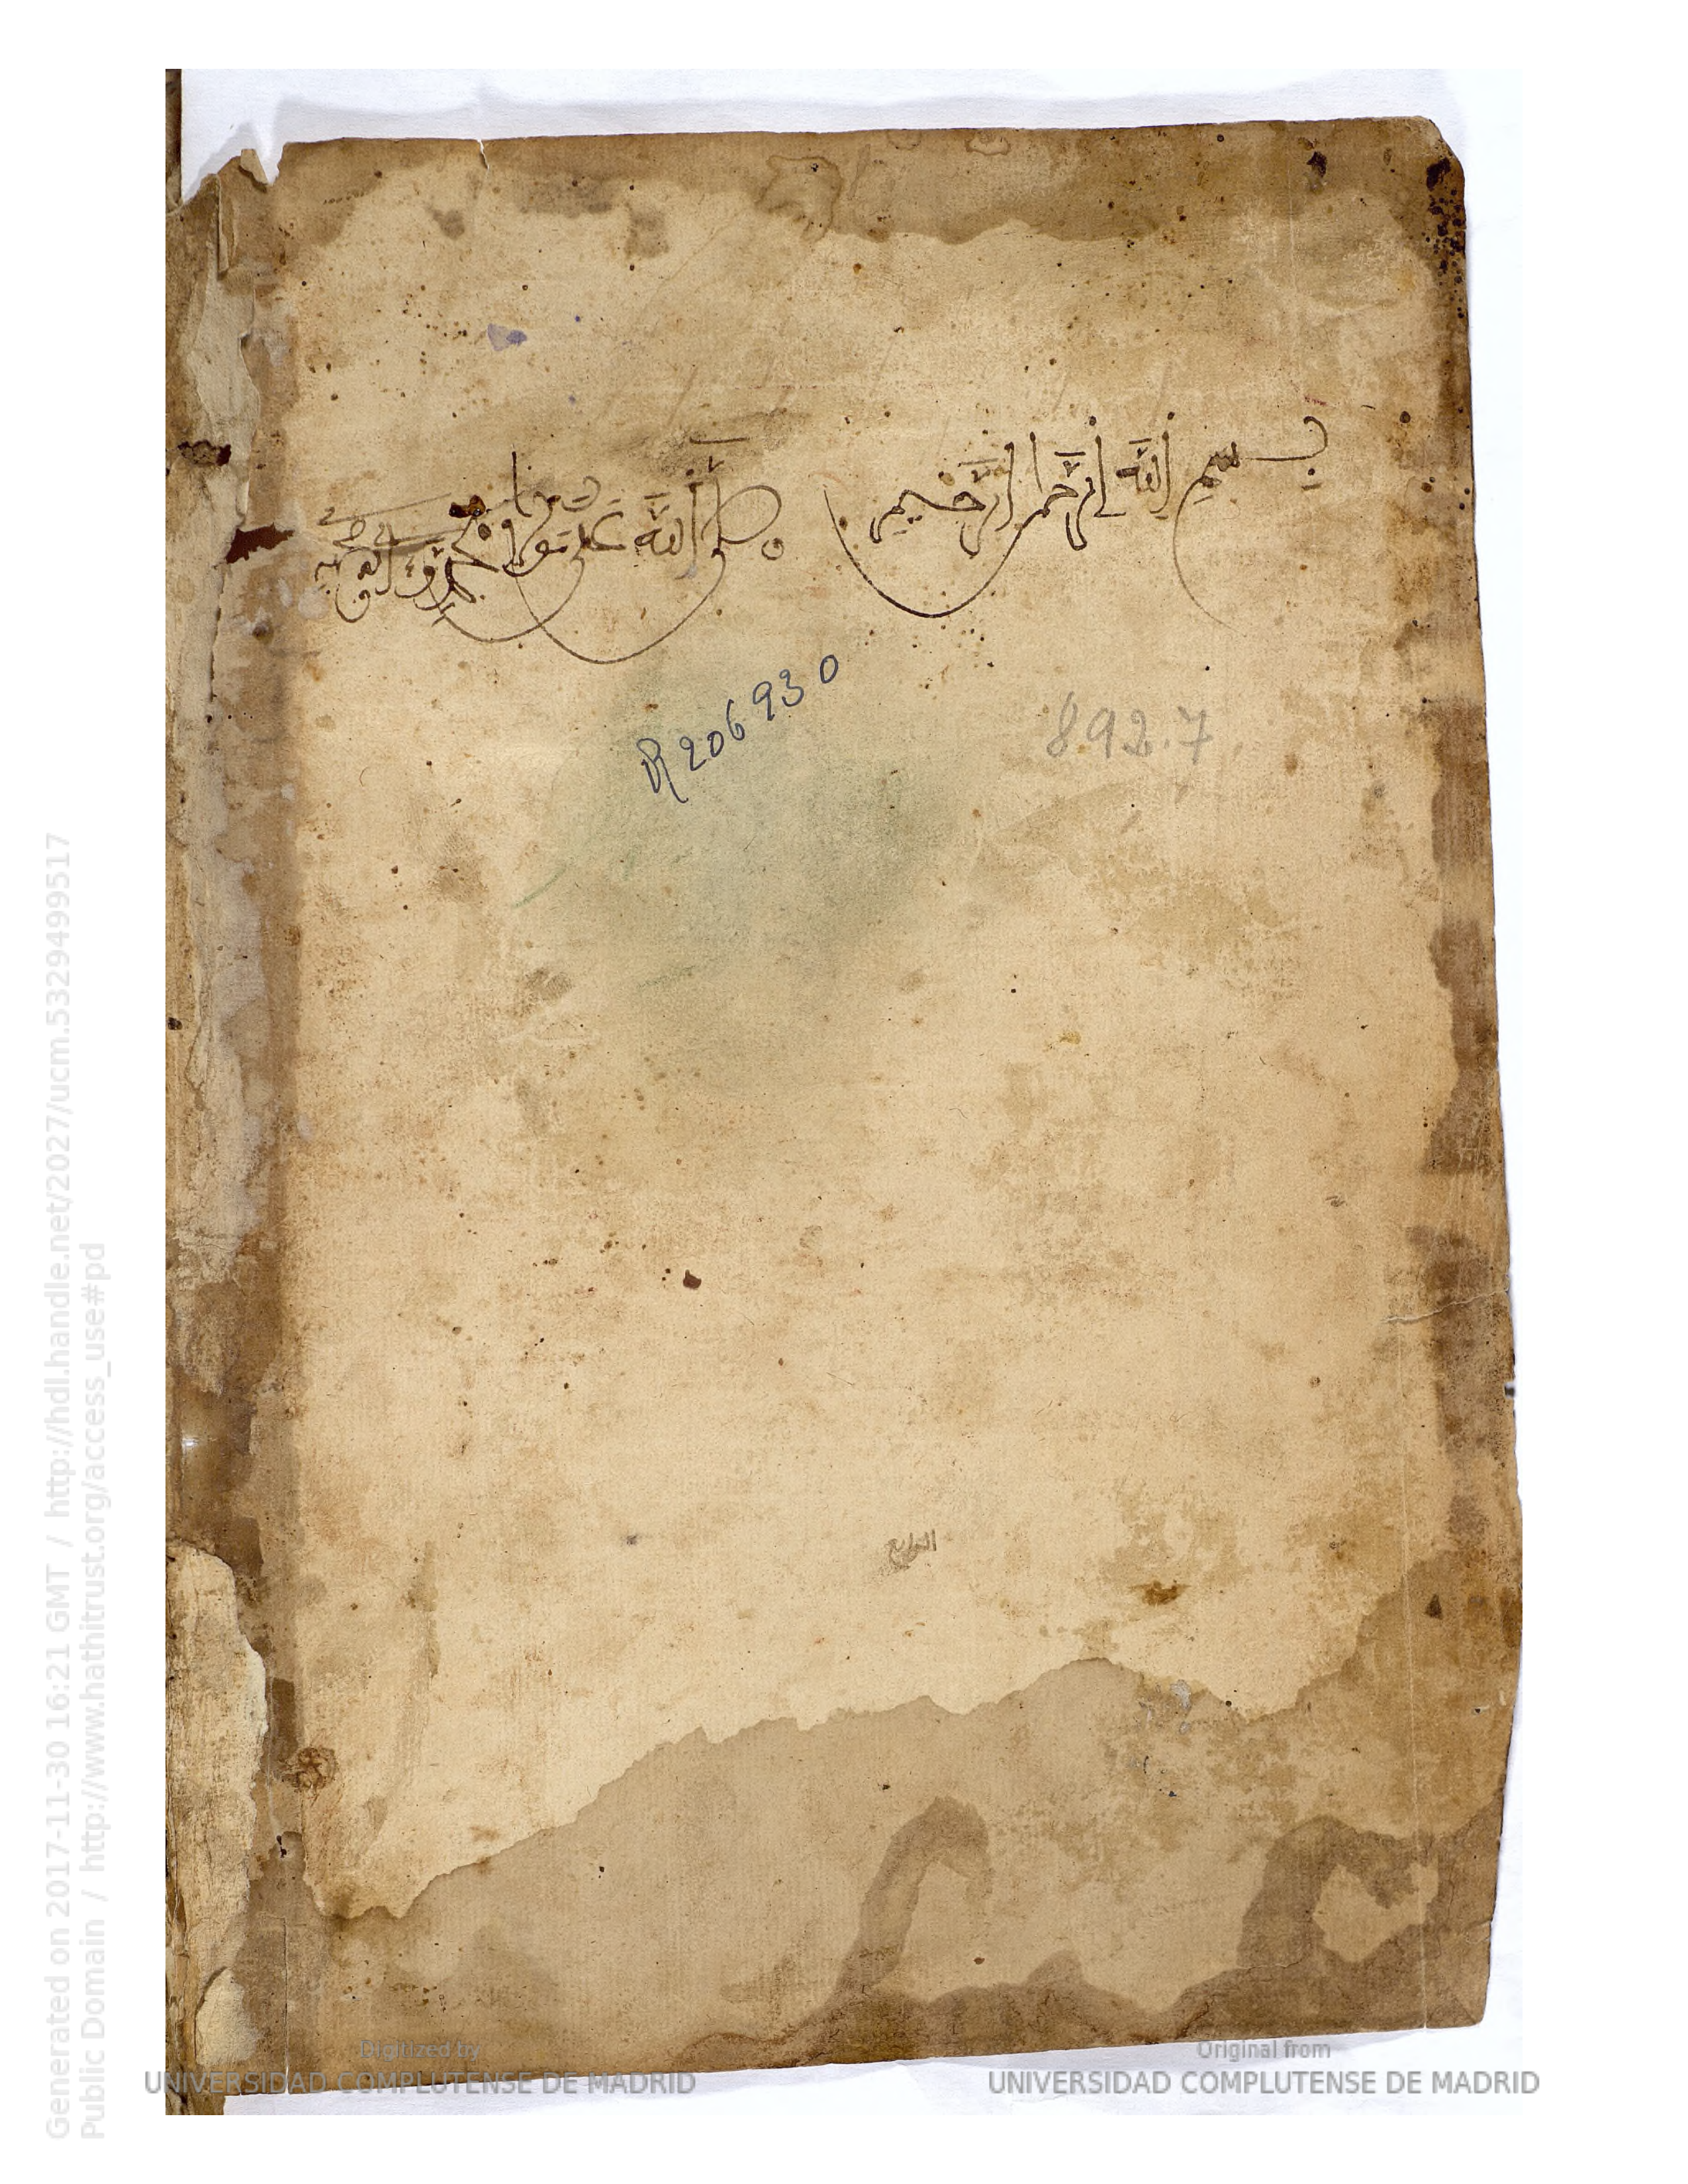 بسم الله الرحمن الرحيم صلى الله على سيدنا ومولانا محمد وآله وصحبه
R 206930
892.7
Generated on 2017-11-30 16:21 GMT / http://hdl.handle.net/2027/ucm.5329499517
Public Domain / http://www.hathitrust.org/access_use#pd
Digitized by
UNIVERSIDAD COMPLUTENSE DE MADRID
Original from
UNIVERSIDAD COMPLUTENSE DE MADRID